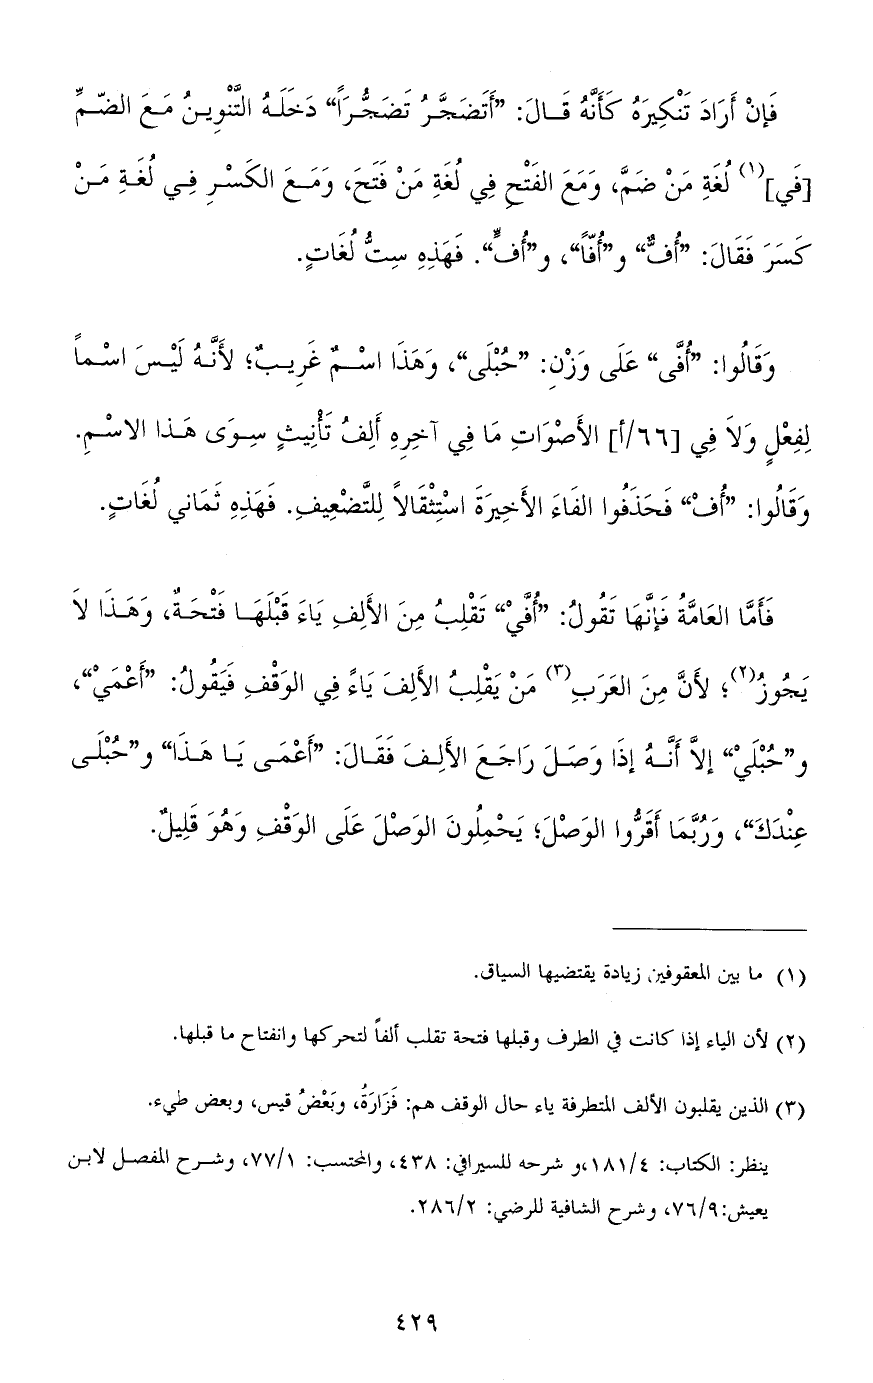 فَإنْ أَرَادَ تَنْكِيرَهُ كَأَنَّهُ قَـالَ: ”أَتَضَجَّرُ تَضَجُّرَاً“ دَخَلَهُ التَّنْوِينُ مَعَ الضّمِّ
[في](١) لُغَةِ مَنْ ضَمَّ، وَمَعَ الفَتْحِ فِي لُغَةِ مَنْ فَتَحَ، وَمَـعَ الكَسْرِ فِـي لُغَـةِ مَـنْ
كَسَرَ فَقَالَ: ”أُفٌّ“ و”أُفّاً“، و”أُفٍّ“. فَهَذِهِ سِتُّ لُغَاتٍ.
وَقَالُوا: ”أُفَّى“ عَلَى وَزْنِ: ”حُبْلَى“، وَهَذَا اسْـمٌ غَرِيـبٌ؛ لأَنَّـهُ لَيْـسَ اسْـماً
لِفِعْلٍ وَلاَ فِي [٦٦/أ] الأَصْوَاتِ مَا فِي آخِرِهِ أَلِفُ تَأْنِيثٍ سِـوَى هَـذا الاسْـمِ.
وَقَالُوا: ”أُفْ“ فَحَذَفُوا الفَاءَ الأَخِيرَةَ اسْتِثْقَالاً لِلتَّضْعِيفِ. فَهَذِهِ ثَمَاني لُغَاتٍ.
فَأَمَّا العَامَّةُ فَإنَّهَا تَقُولُ: ”أُفَّيْ“ تَقْلِبُ مِنَ الأَلِفِ يَاءَ قَبْلَهَـا فَتْحَةٌ، وَهَـذَا لاَ
يَجُوزُ(٢)؛ لأَنَّ مِنَ العَرَبِ(٣) مَنْ يَقْلِبُ الأَلِفَ يَاءً فِي الوَقْفِ فَيَقُولُ: ”أَعْمَيْ“،
و”حُبْلَيْ“ إلاَّ أَنَّـهُ إذَا وَصَـلَ رَاجَـعَ الأَلِـفَ فَقَـالَ: ”أَعْمَـى يَـا هَـذَا“ و”حُبْلَـى
عِنْدَكَ“، وَرُبَّمَا أَقَرُّوا الوَصْلَ؛ يَحْمِلُونَ الوَصْلَ عَلَى الوَقْفِ وَهُوَ قَلِيلٌ.
(١) ما بين المعقوفين زيادة يقتضيها السياق.
(٢) لأن الياء إذا كانت في الطرف وقبلها فتحة تقلب ألفاً لتحركها وانفتاح ما قبلها.
(٣) الذين يقلبون الألف المتطرفة ياء حال الوقف هم: فَزَارَةُ، وبَعْضُ قيس، وبعض طيء.
ينظر: الكتاب: ١٨١/٤،و شرحه للسيرافي: ٤٣٨، والمحتسب: ٧٧/١، وشـرح المفصـل لابـن
يعيش:٧٦/٩، وشرح الشافية للرضي: ٢٨٦/٢.
٤٢٩